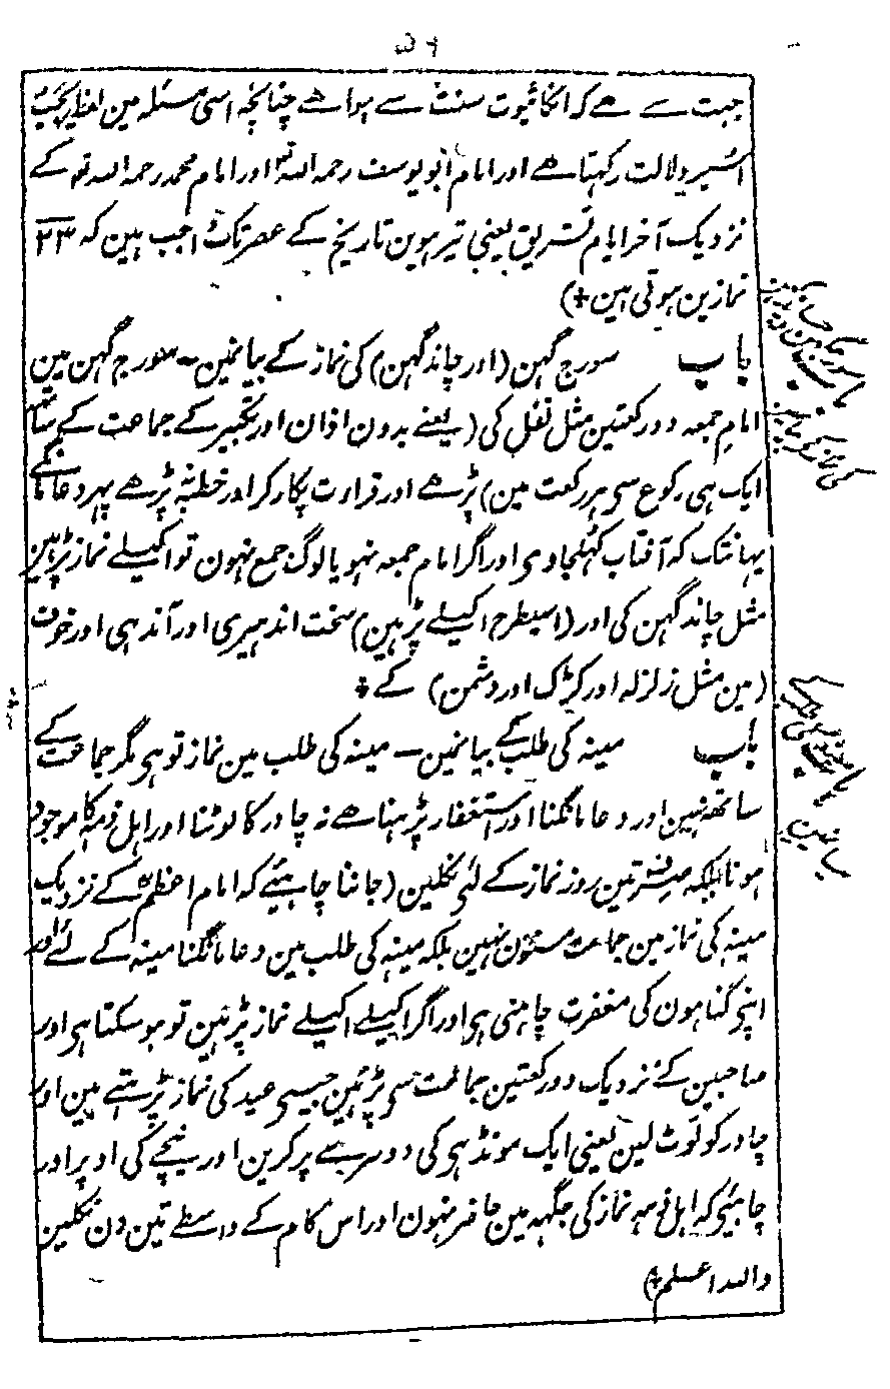 ۵۶
جہت سے ہے کہ انکا ثبوت سنت سے ہوا ہے چنانچہ اسی مسئلہ مین لفظ یجب
اسپر دلالت رکہتا ہے اور امام ابو یوسف رحمہ اللہ تع اور امام محمد رحمہ اللہ تع کے
نزدیک آخر ایام تشریق یعنی تیرہوین تاریخ کے عصر تک واجب ہین کہ ۲۳
نمازین ہوتی ہین +)
باب سورج گہن (اور چاند گہن) کی نماز کے بیانمین ــ سورج گہن مین
امام جمعہ دو رکعتین مثل نفل کی (یعنے بدون اذان اور تکبیر کے جماعت کے ساتھ
ایک ہی رکوع سی ہر رکعت مین) پڑھے اور قراءت پکار کر اور خطبہ نہ پڑھے پہر دعا مانگے
یہانتک کہ آفتاب کہلجاوی اور اگر امام جمعہ نہو یا لوگ جمع نہون تو اکیلے نماز پڑہین
مثل چاند گہن کی اور (اسیطرح اکیلے پڑہین) سخت اندہیری اور آندہی اور خوف
(مین مثل زلزلہ اور کڑک اور دشمن) کے +
باب مینہ کی طلب کے بیانمین ــ مینہ کی طلب مین نماز تو ہی مگر جماعت کے
ساتھ نہین اور دعا مانگنا اور استغفار پڑہنا ہے نہ چادر کا لوٹنا اور اہل ذمہ کا موجود
ہونا بلکہ صرف تین روز نماز کے لئی نکلین (جاننا چاہئیے کہ امام اعظم رح کے نزدیک
مینہ کی نماز مین جماعت مسنون نہین بلکہ مینہ کی طلب مین دعا مانگنا مینہ کے لئے اور
اپنی گناہون کی مغفرت چاہنی ہی اور اگر اکیلے اکیلے نماز پڑہین تو ہو سکتا ہی اور
صاحبین کے نزدیک دو رکعتین جماعت سی پڑہین جیسی عید کی نماز پڑہتے ہین اور
چادر کو لوٹ لین یعنی ایک مونڈہی کی دوسرے پر کرین اور نیچے کی اوپر اور
چاہئیی کہ اہل ذمہ نماز کی جگہہ مین حاضر نہون اور اس کام کے واسطے تین دن نکلین
واللہ اعلم +)